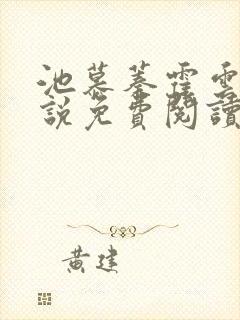 池慕蓁霆雲
說免費閱讀
黃建